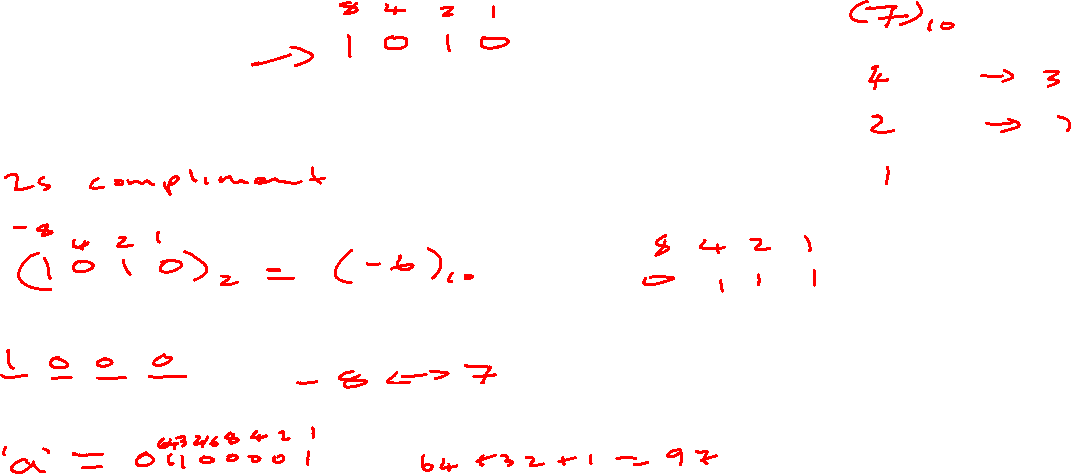 8 4 2 1
→ 1 0 1 0
(7)10
4 → 3
2 → 1
1
2s compliment
-8 4 2 1
(1 0 1 0)2 = (-6)10
8 4 2 1
0 1 1 1
1 0 0 0
-8 ↔ 7
64 32 16 8 4 2 1
'a' = 01100001
64 + 32 + 1 = 97